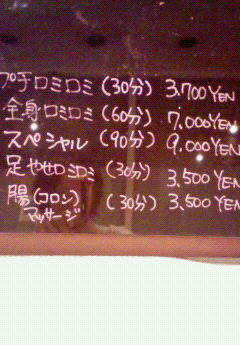 プチロミロミ (30分) 3,700YEN
全身ロミロミ (60分) 7,000YEN
スペシャル (90分) 9,000YEN
足やせロミロミ (30分) 3,500YEN
腸(コロン) (30分) 3,500YEN
マッサージ